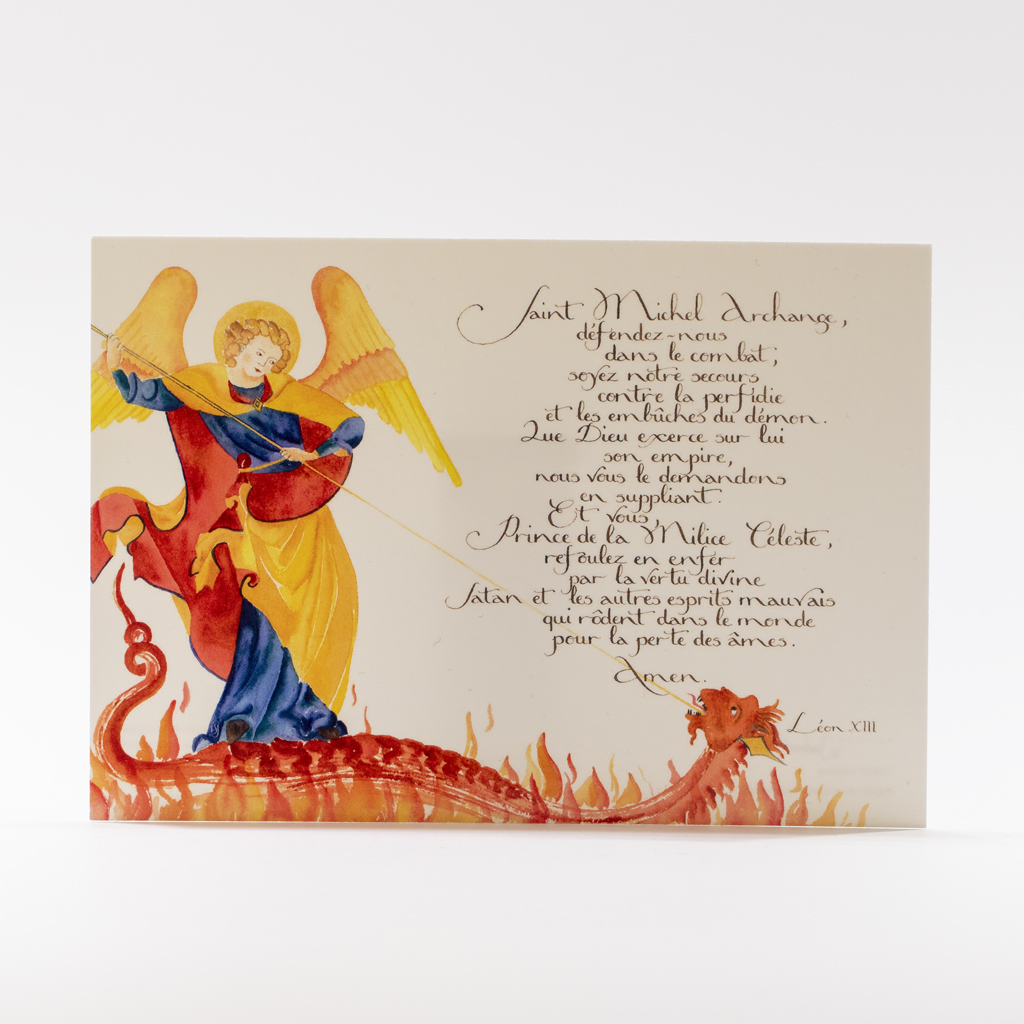 Saint Michel Archange,
défendez-nous
dans le combat;
soyez nôtre secours
contre la perfidie
et les embûches du démon.
Que Dieu exerce sur lui
son empire,
nous vous le demandons
en suppliant.
Et vous,
Prince de la Milice Céleste,
refoulez en enfer
par la vertu divine
Satan et les autres esprits mauvais
qui rôdent dans le monde
pour la perte des âmes.
Amen.
Léon XIII